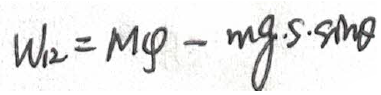 W₁₂ = Mφ − mg·s·sinθ